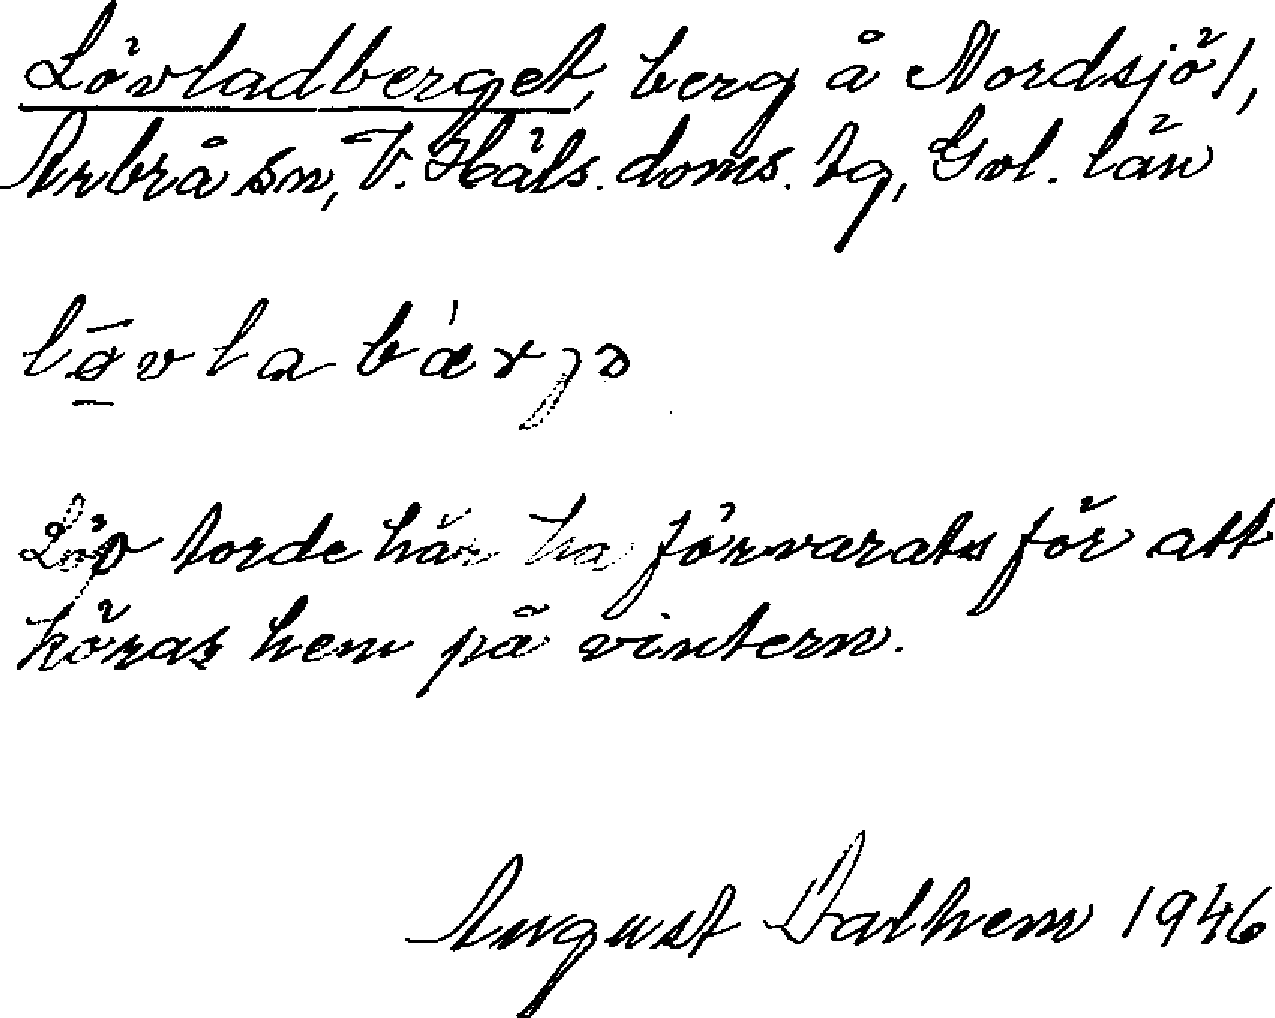 Lövladberget, berg å Nordsjö 1,
Arbrå sn, V. Häls. doms. tg, Gvl. län
lø̄vlabä̀rjə
Löv torde här ha förvarats för att
köras hem på vintern.
August Dalhem 1946